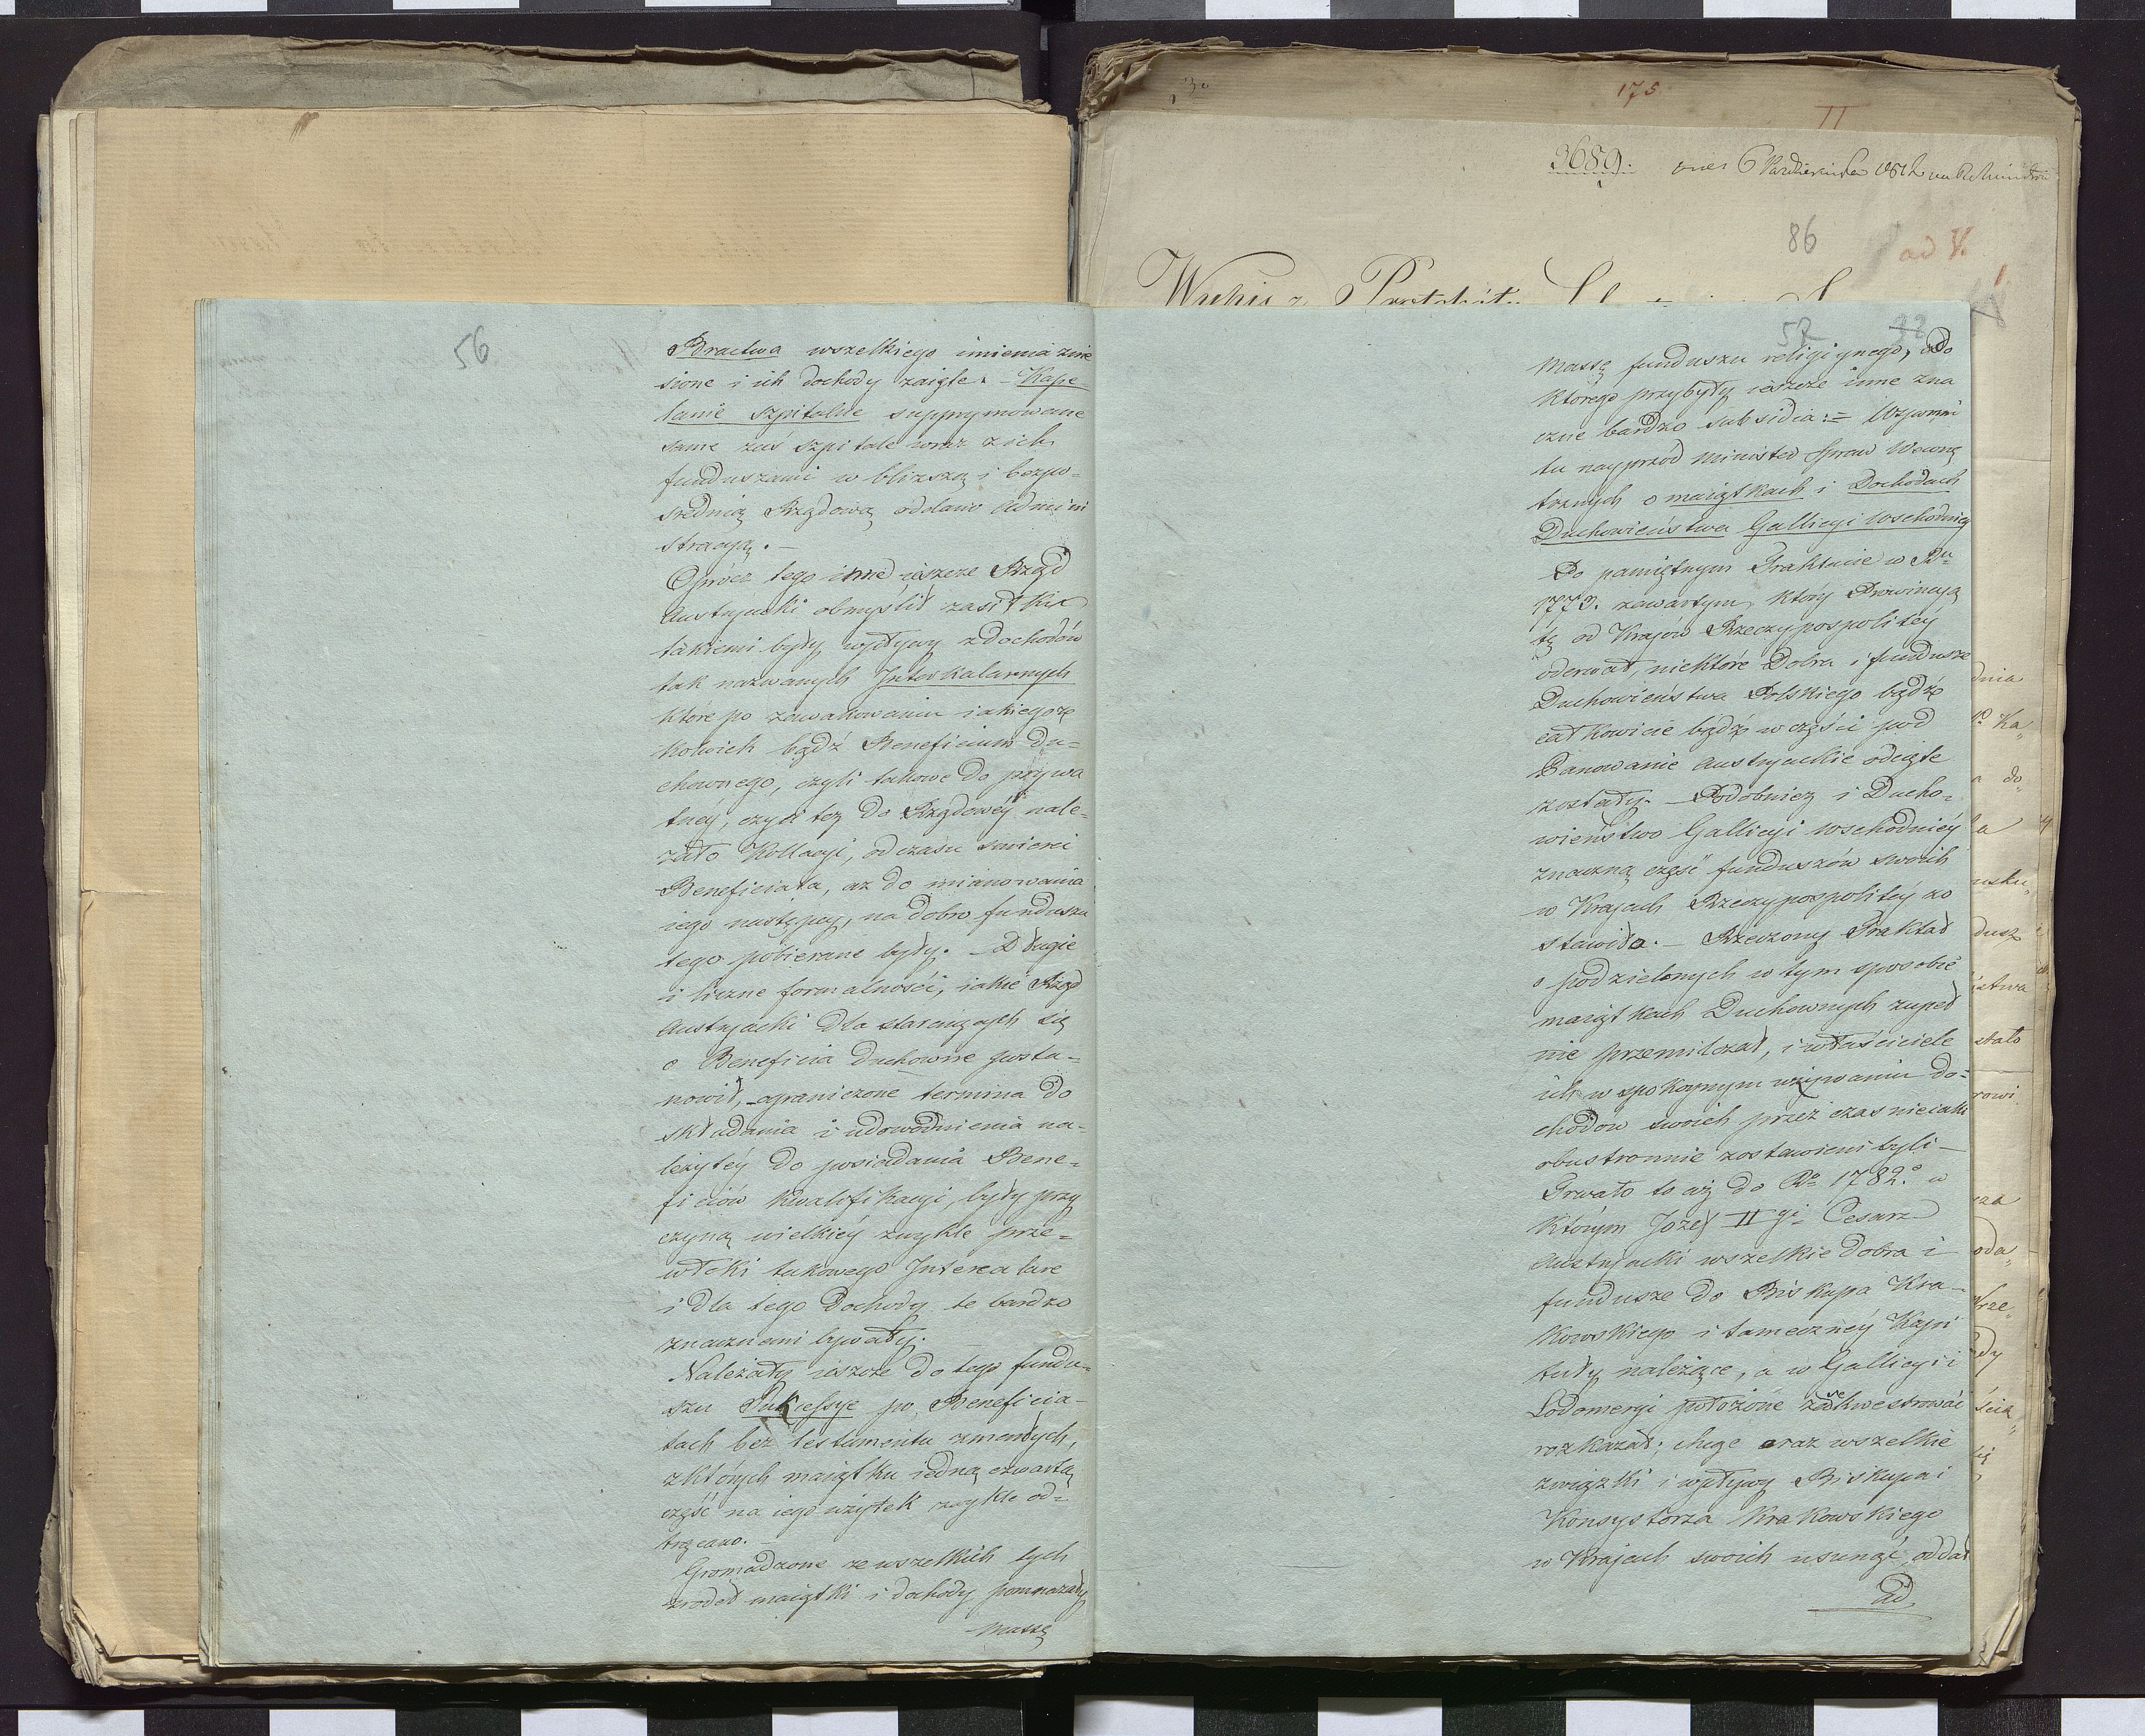 175
II
3689. dnia 6 Października 1812
86
ad V.
56
Bractwa wszelkiego imienia znie
sione i ich dochody zaięte. – Kape
lanie szpitalne supprymowane
same zaś szpitale wraz z ich
funduszami w bliższą i bezpo-
srednią Rządową oddano admini
stracyą. –
Oprócz tego inne ieszcze Rząd
Austryacki obmyslił zasiłki
takiemi były wpływy z dochodów
tak nazwanych Interkalarnych
które po zawakowaniu iakiegoz
kolwiek bądź Beneficium du=
chownego, czyli takowe do prywa
tnéy, czyli też do Rządowéy nale-
żało Kollacyi, od czasu smierci
Beneficiata, aż do mianowania
iego następcy, na dobro funduszu
tego pobierane były. – Długie
i liczne formalności, iakie Rząd
Austryacki dla staraiących się
o Beneficia Duchowne posta-
nowił, ograniczone termina do
składania i udowodnienia na-
leżytéy do posiadania Bene=
ficiów kwalifikacyi, były przy
czyną wielkiéy zwykle prze=
włoki takowego Intercalare
i dla tego dochody te bardzo
znacznemi bywały.
Należały ieszcze do tego fundu=
szu Sukcessye po Beneficia-
tach bez testamentu zmarłych,
z których maiątku iedną czwartą
część na iego użytek zwykle od=
trącano. –
Gromadzone ze wszelkich tych
zrodeł maiątki i dochody pomnażały
massę
massę funduszu religiynego, do
którego przybyły ieszcze inne zna
czne bardzo subsidia: = Wspomni
tu nayprzód Minister Spraw Wewnę
trznych o maiątkach i Dochodach
Duchowieństwa Gallicyi wschodniey
Po pamiętnym Traktacie w Ru
1773. zawartym, który Prowincyą
tę od Kraiów Rzeczypospolitéy
oderwał, niektóre Dobra i fundusze
Duchowieństwa Polskiego bądź
całkowicie bądź w części pod
Panowanie Austryackie odcięte
zostały. – Podobnież i Ducho-
wieństwo Gallicyi wschodniéy
znaczną część funduszów swoich
w Krajach Rzeczypospolitéy zo
stawiło. – Rzeczony Traktat
o podzielonych w tym sposobie
maiątkach Duchownych zupeł
nie przemilczał, i właściciele
ich w spokoynym używaniu do=
chodow swoich przez czas nieiaki
obustronnie zostawieni byli –
Trwało to aż do Ro 1782o w
którym Jozef IIgi Cesarz
Austryacki wszelkie dobra i
fundusze do Biskupa Kra-
kowskiego i tameczney Kapi
tuły należące, a w Gallicyi i
Lodomeryi położone zasekwestrować
rozkazał; chcąc oraz wszelkie
związki i wpływy Biskupa i
Konsystorza Krakowskiego
w Krajach swoich usunąć, oddał
ad